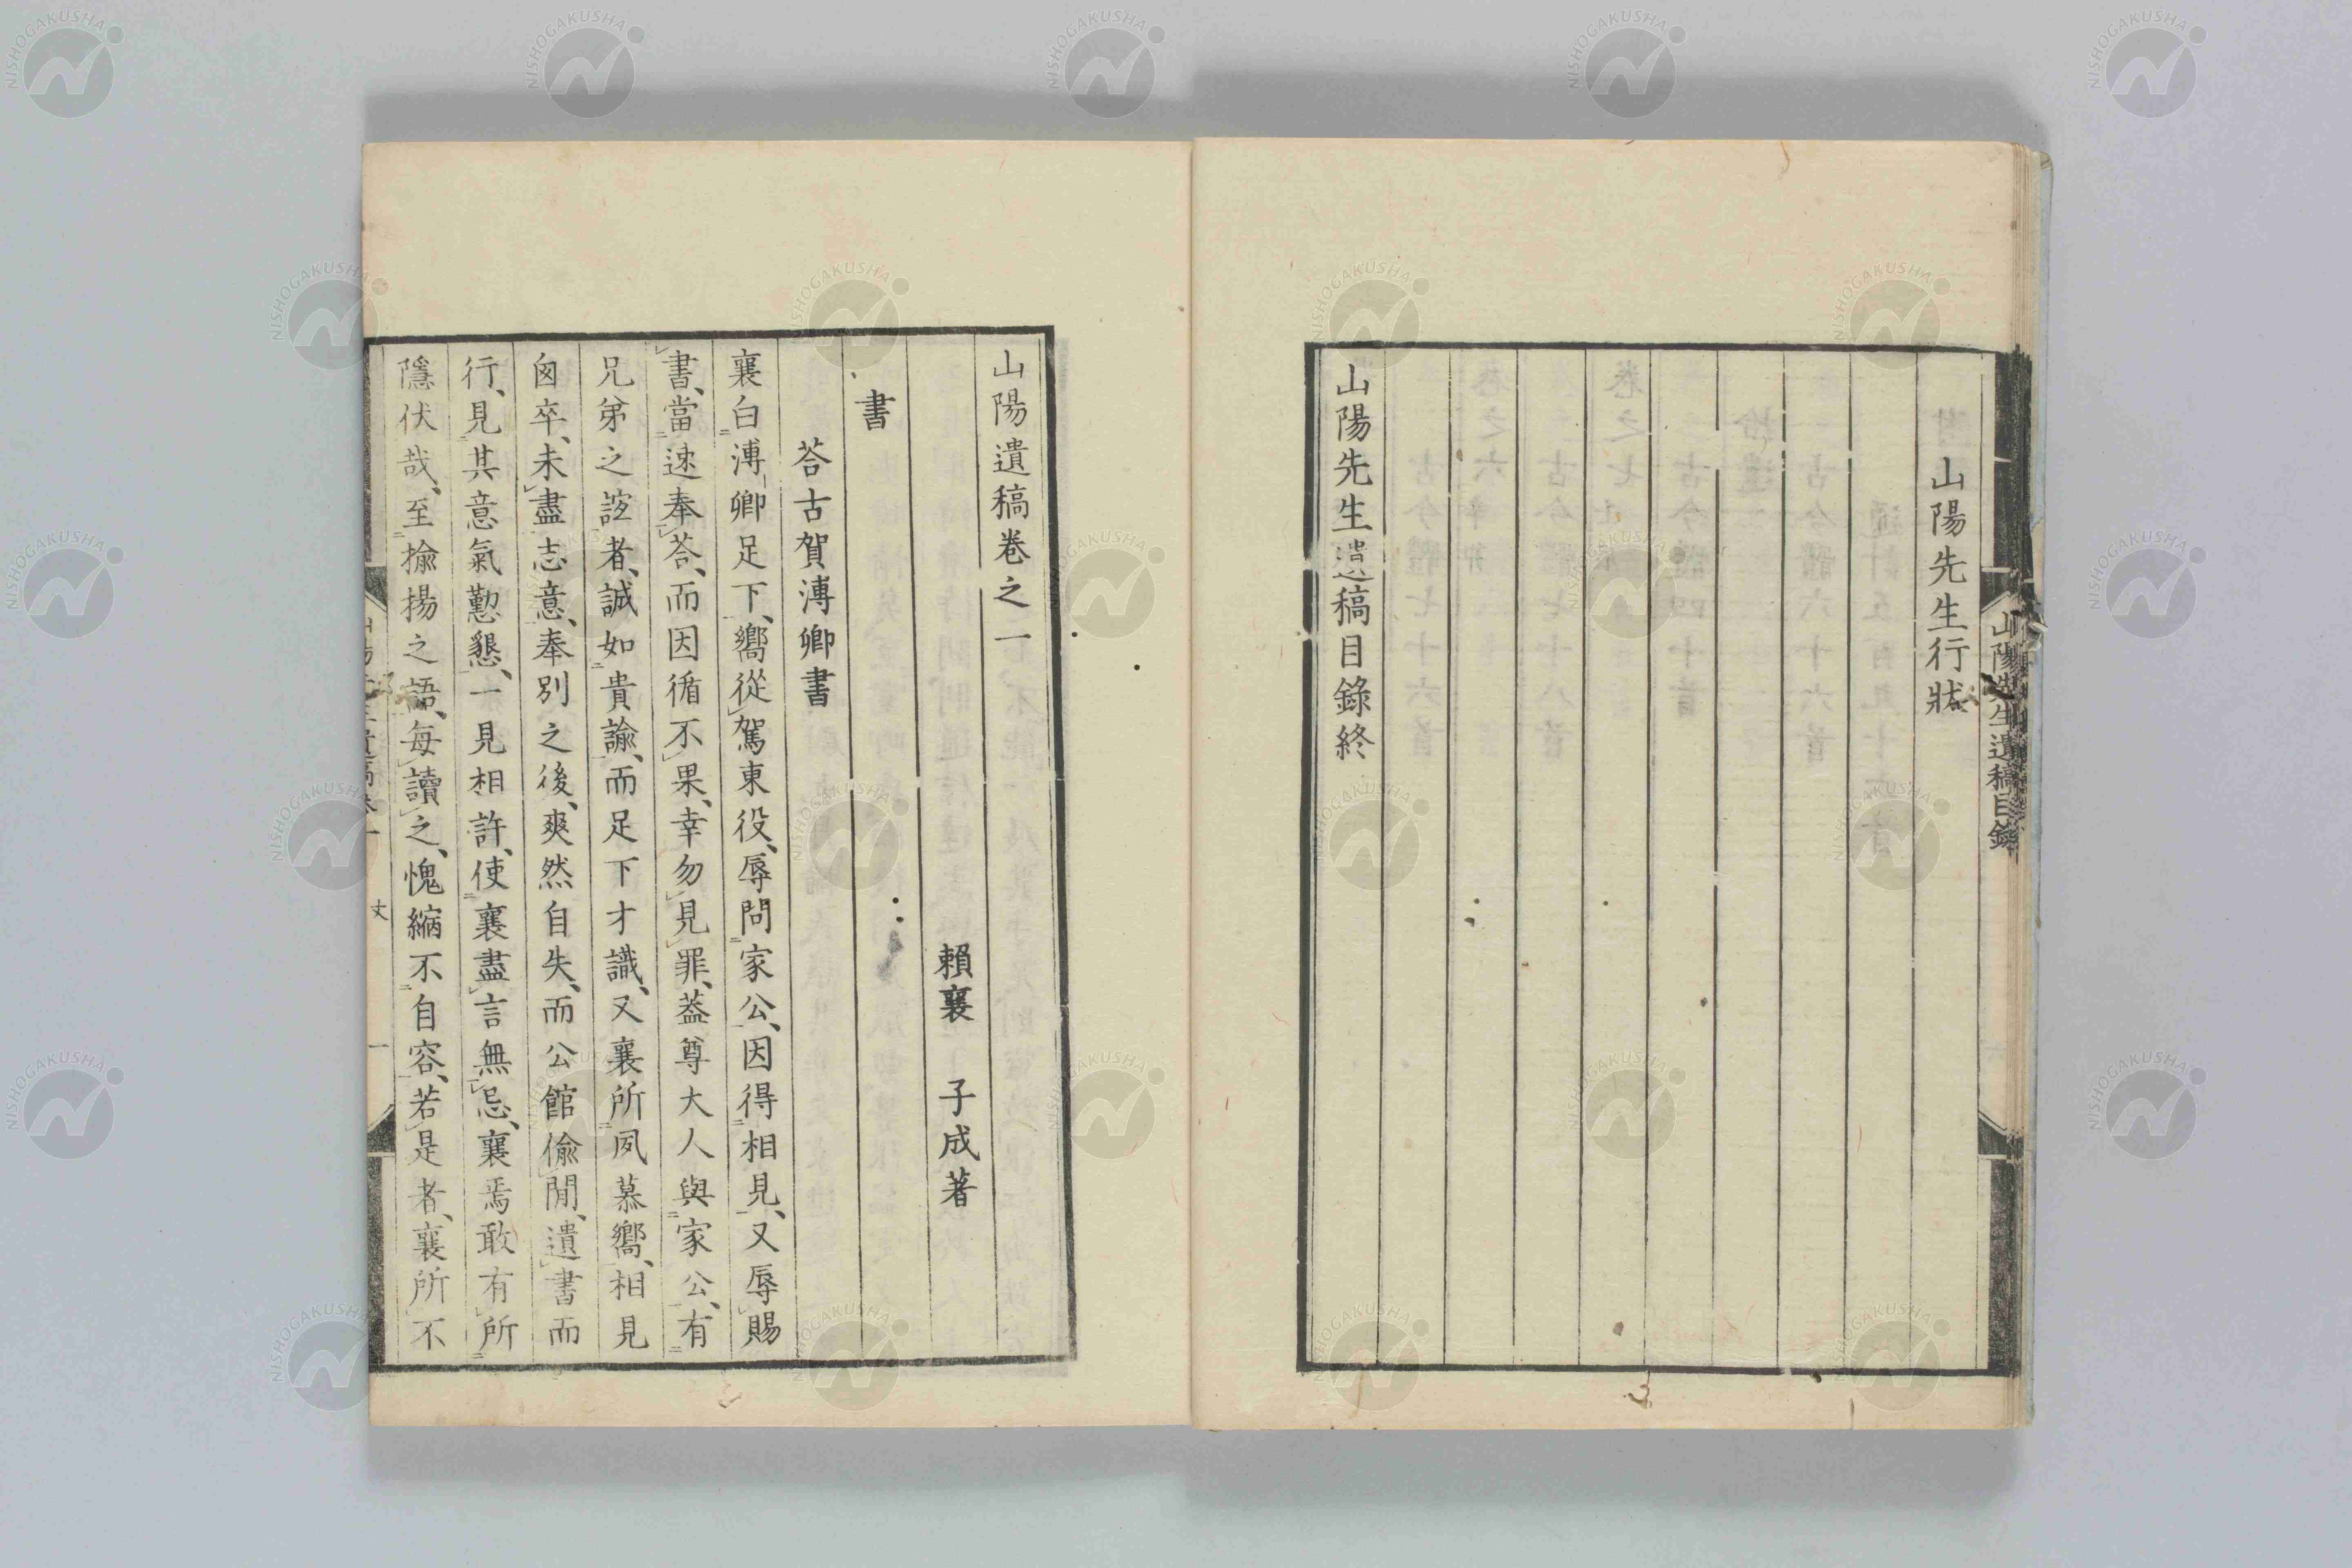 山陽先生行狀
山陽先生遺稿目錄終
山陽先生遺稿目錄
山陽遺稿卷之一
賴襄　子成著
書
荅古賀溥卿書
襄白溥卿足下、嚮從駕東役、辱問家公、因得相見、又辱賜
書、當速奉荅、而因循不果、幸勿見罪、葢尊大人與家公、有
兄弟之誼者、誠如貴諭、而足下才識、又襄所夙慕嚮、相見
匆卒、未盡志意、奉別之後、爽然自失、而公館偷閒、遺書而
行、見其意氣懃懇、一見相許、使襄盡言無忌、襄焉敢有所
隱伏哉、至揄揚之語、每讀之、愧縮不自容、若是者、襄所不
NISHOGAKUSHA